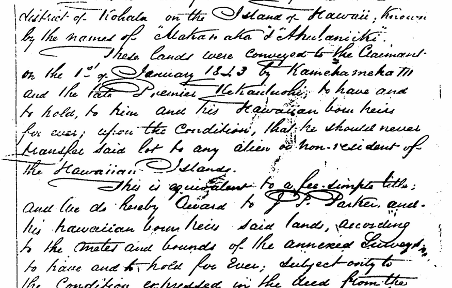 district of Kohala on the Island of Hawaii, known
by the names of "Makanaka"
These lands were conveyed to the Claimant
on the 1st of January 1843 by Kamehameha III
and the late Premier Kekauluohi, to have and
to hold, to him and his Hawaiian born heirs
for ever; upon the Condition, that he should never
transfer said lot to any alien or non-resident of
the Hawaiian Islands.
This is equivalent to a fee-simple title;
and we do hereby Award to J. P. Parker and
his hawaiian born heirs said lands, according
to the metes and bounds of the annexed Surveys,
to have and to hold for Ever; subject only to
the Condition expressed in the deed from the